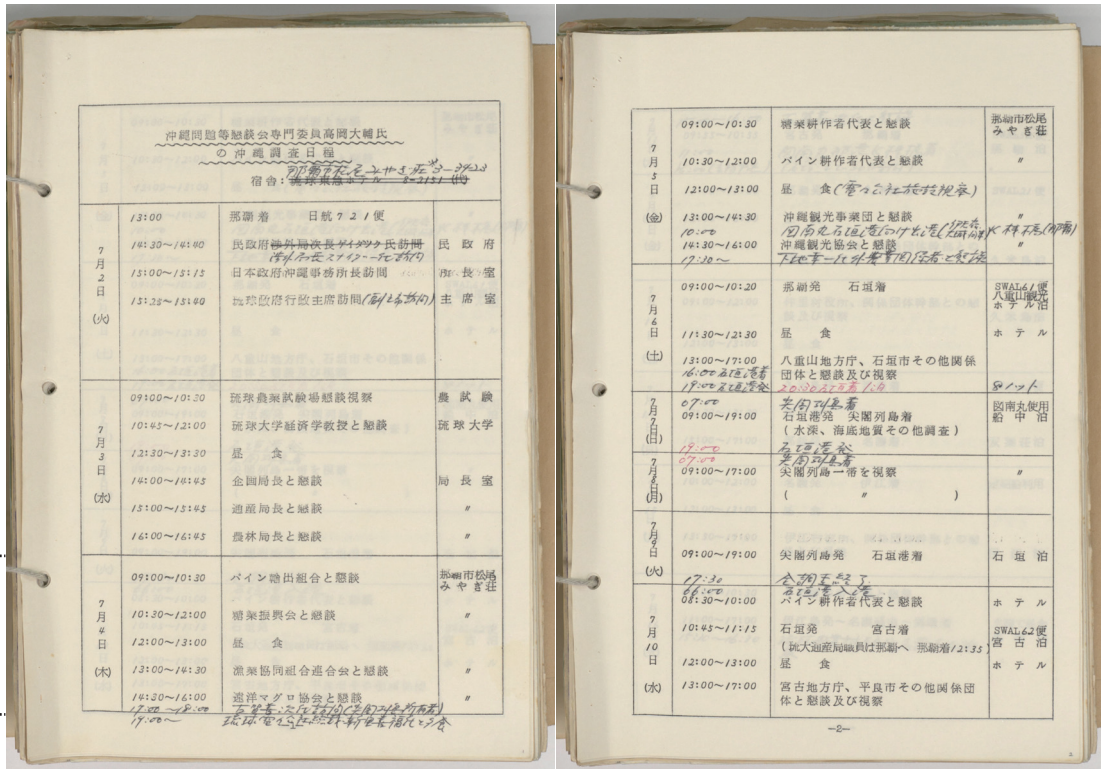 沖縄問題等懇談会専門委員高岡大輔氏
の沖縄調査日程
那覇市松尾みやぎ荘 3-3923
宿舎:琉球東急ホテル 8-2151(代)
7月2日(火)
13:00 那覇着 日航721便
14:30~14:40 民政府渉外局次長ゲイダツク氏訪問 民政府
15:00~15:15 日本政府沖縄事務所長訪問 所長室
15:25~15:40 琉球政府行政主席訪問 主席室
7月3日(水)
09:00~10:30 琉球農業試験場懇談視察 農試験
10:45~12:00 琉球大学経済学教授と懇談 琉球大学
12:30~13:30 昼食
14:00~14:45 企画局長と懇談 局長室
15:00~15:45 通産局長と懇談 〃
16:00~16:45 農林局長と懇談 〃
7月4日(木)
09:00~10:30 パイン輸出組合と懇談 那覇市松尾みやぎ荘
10:30~12:00 糖業振興会と懇談 〃
12:00~13:00 昼食 〃
13:00~14:30 漁業協同組合連合会と懇談 〃
14:30~16:00 遠洋マグロ協会と懇談 〃
17:00~18:00 古賀善次氏訪問(尖閣列島所有者)
19:00~
7月5日(金)
09:00~10:30 糖業耕作者代表と懇談 那覇市松尾みやぎ荘
10:30~12:00 パイン耕作者代表と懇談 〃
12:00~13:00 昼食(電々公社施設視察) 〃
13:00~14:30 沖縄観光事業団と懇談 〃
10:00 図南丸石垣港向け出港
14:30~16:00 沖縄観光協会と懇談 〃
17:30~
7月6日(土)
09:00~10:20 那覇発 石垣着 SWAL61便
八重山観光ホテル泊
11:30~12:30 昼食 ホテル
13:00~17:00 八重山地方庁、石垣市その他関係
団体と懇談及び視察
16:00石垣港着
19:00石垣港発 8ノット
7月7日(日)
07:00 尖閣列島着
09:00~19:00 石垣港発 尖閣列島着 図南丸使用
(水深、海底地質その他調査) 船中泊
19:00 石垣港発
7月8日(月)
07:00 尖閣列島着
09:00~17:00 尖閣列島一帯を視察 〃
( 〃 )
7月9日(火)
09:00~19:00 尖閣列島発 石垣港着 石垣泊
17:30 全調査終了
06:00 石垣港入港
7月10日(水)
08:30~10:00 パイン耕作者代表と懇談 ホテル
10:45~11:15 石垣発 宮古着 SWAL62便
(琉大通産局職員は那覇へ 那覇着12:35) 宮古泊
12:00~13:00 昼食 ホテル
13:00~17:00 宮古地方庁、平良市その他関係団
体と懇談及び視察
-2-